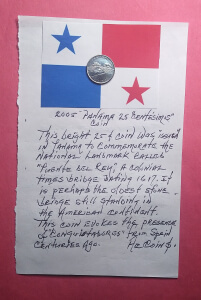 2005 "Panama 25 Centesimos"
Coin
This bright 25¢ coin was issued
in Panama to commemorate the
National Landmark called
"Puente del Rey", a colonial
times bridge dating 1617. It
is perhaps the oldest stone
bridge still standing in
the American continent.
This coin evokes the presence
of "Conquistadores" from Spain
Centuries ago.